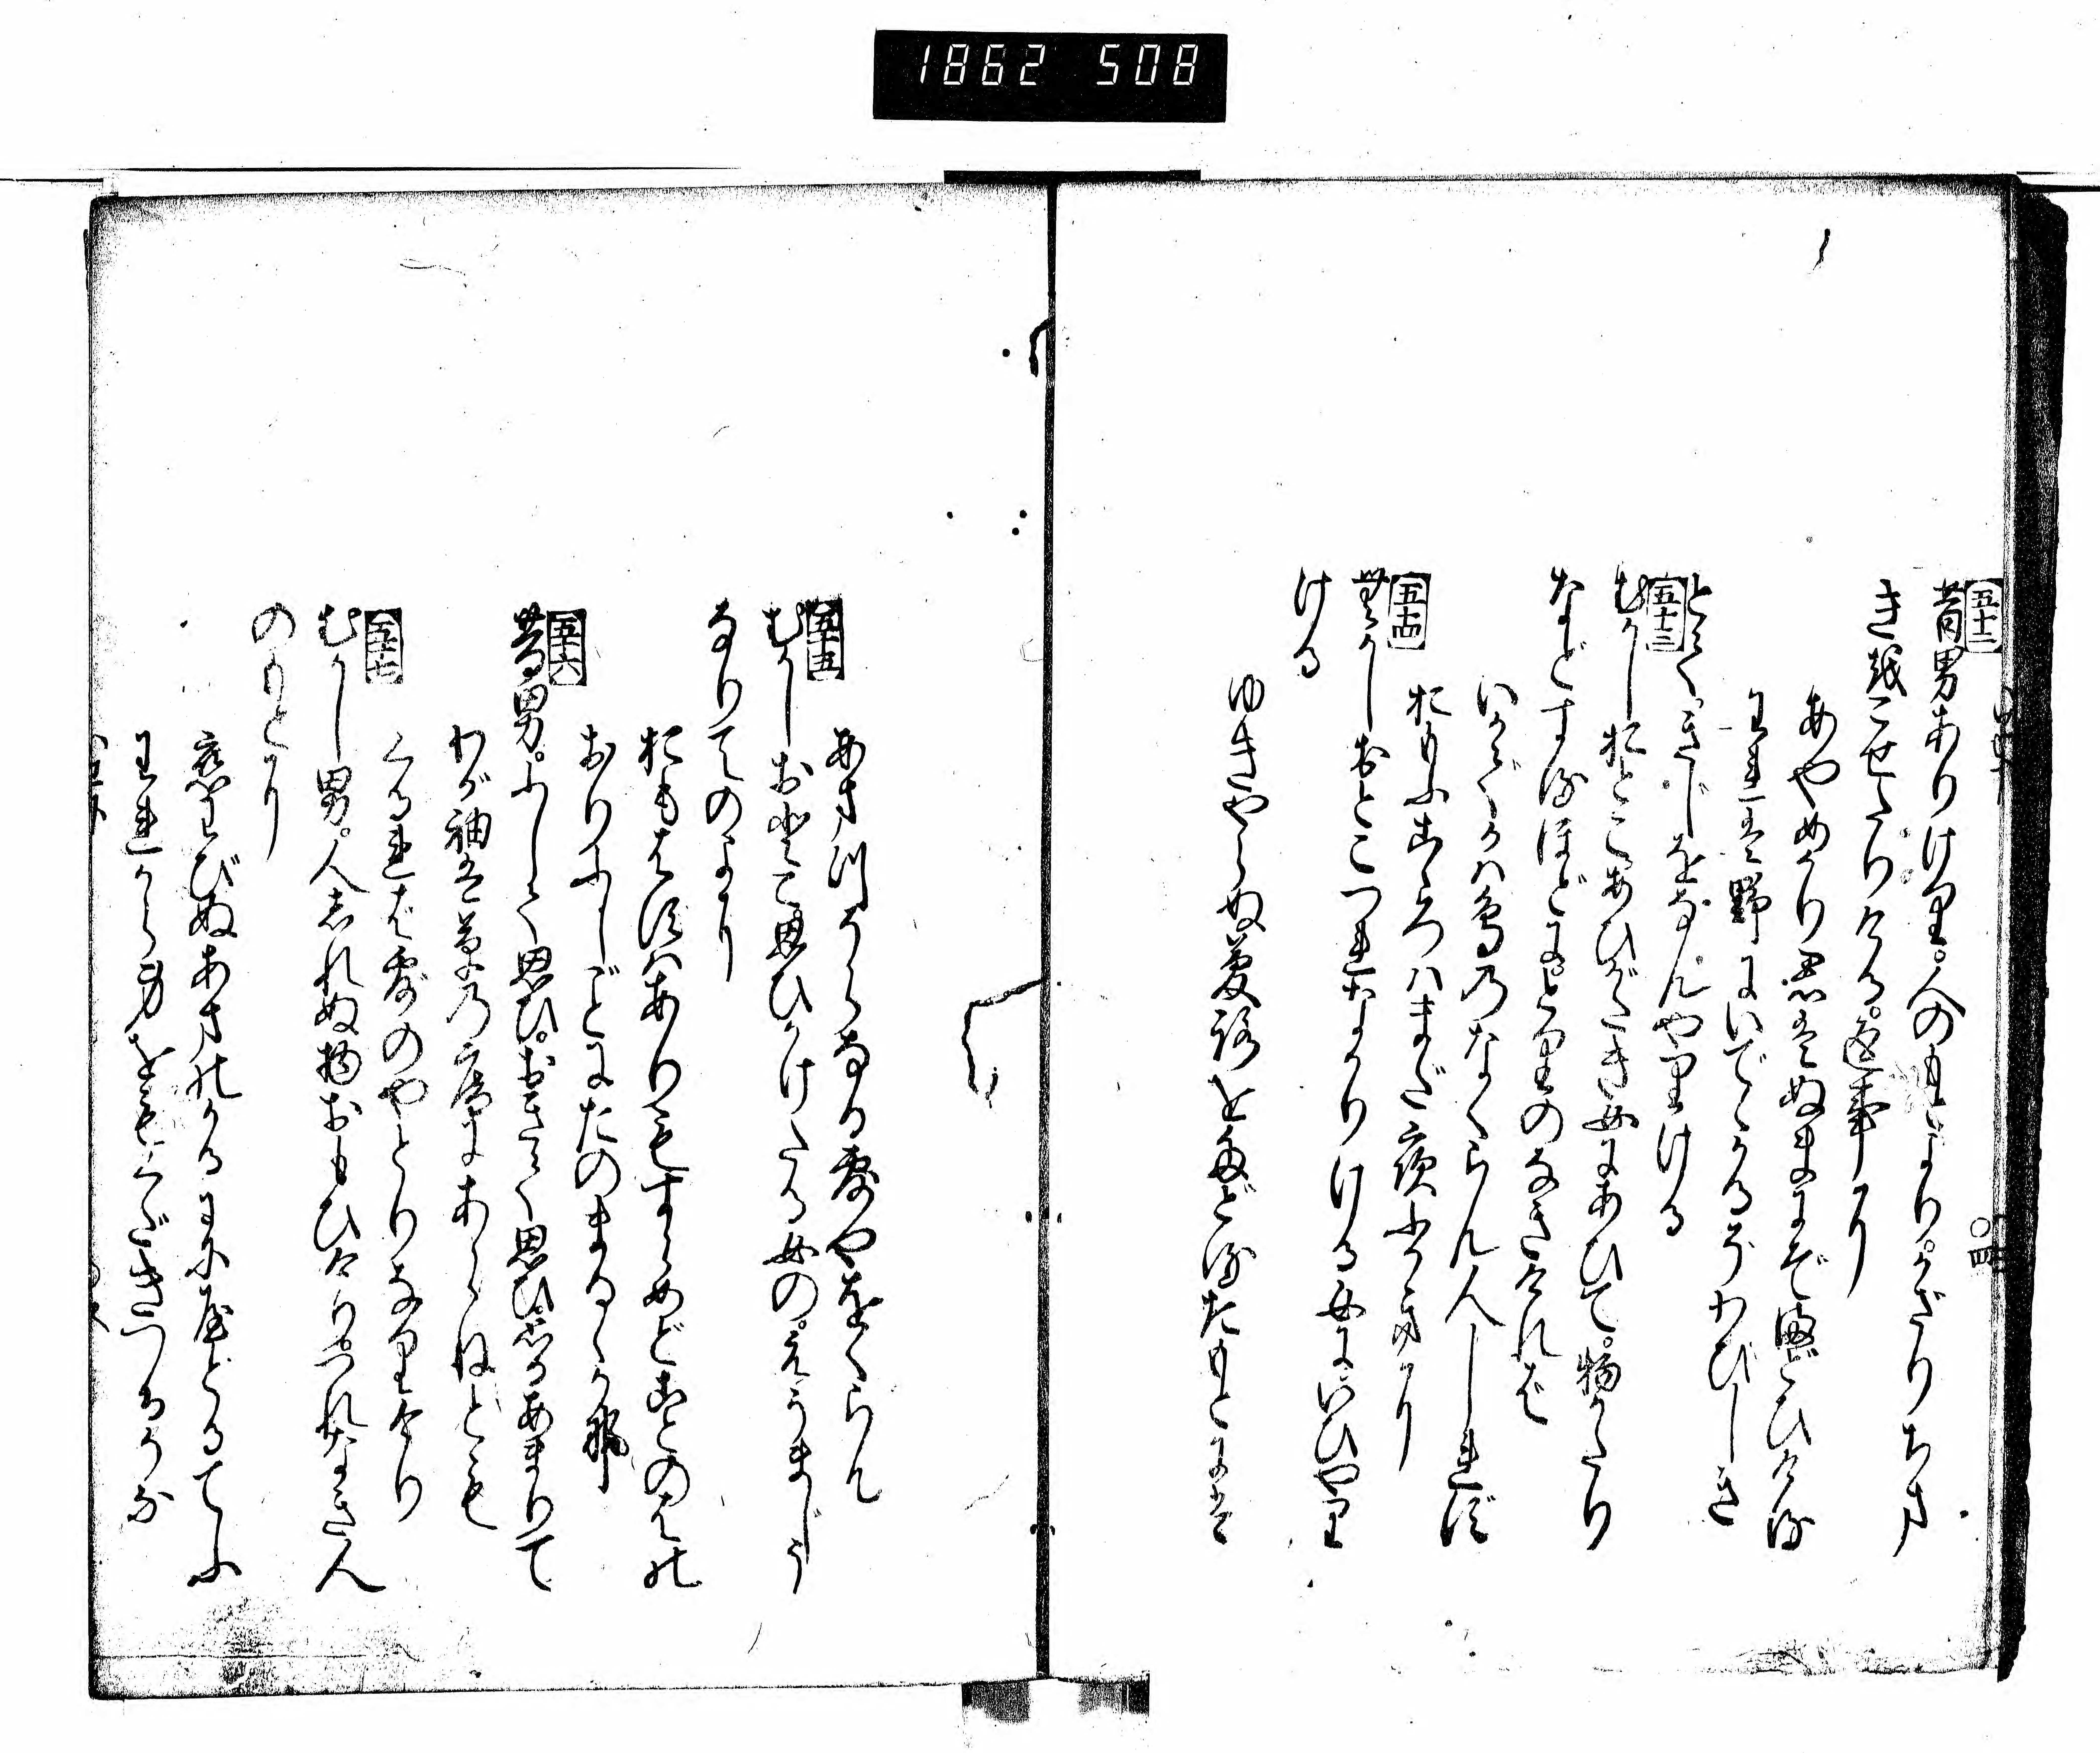 1862 508
五十二
昔男ありけり。人のもとより。かざりちま
きをこせたりける。返事に
あやめかり君はぬまにぞまどひける
われは野にいでゝかるぞわびしき
とて。きじをなんやりける
五十三
むかしおとこあひがたき女にあひて。物がたり
などするほどに。とりのなきければ
いかでかは鳥のなくらん人しれず
おもふ心はまだ夜ふかきに
五十四
むかしおとこつれなかりける女にいひやり
ける
ゆきやらぬ夢路をたどるたもとには
あまつそらなる露やをくらん
五十五
むかしおとこ思ひかけたる女の。えうまじう
なりてのよに
おもはずはありもすらめどことのはの
おりふしごとにたのまるゝかな
五十六
昔男。ふして思ひ。おきて思ひ。思ひあまりて
わが袖は草の庵にあらねども
くるれば露のやとりなりけり
五十七
むかし男。人しれぬ物おもひけり。つれなき人
のもとに
恋わびぬあまのかるもにやどるてふ
われから身をもくだきつるかな